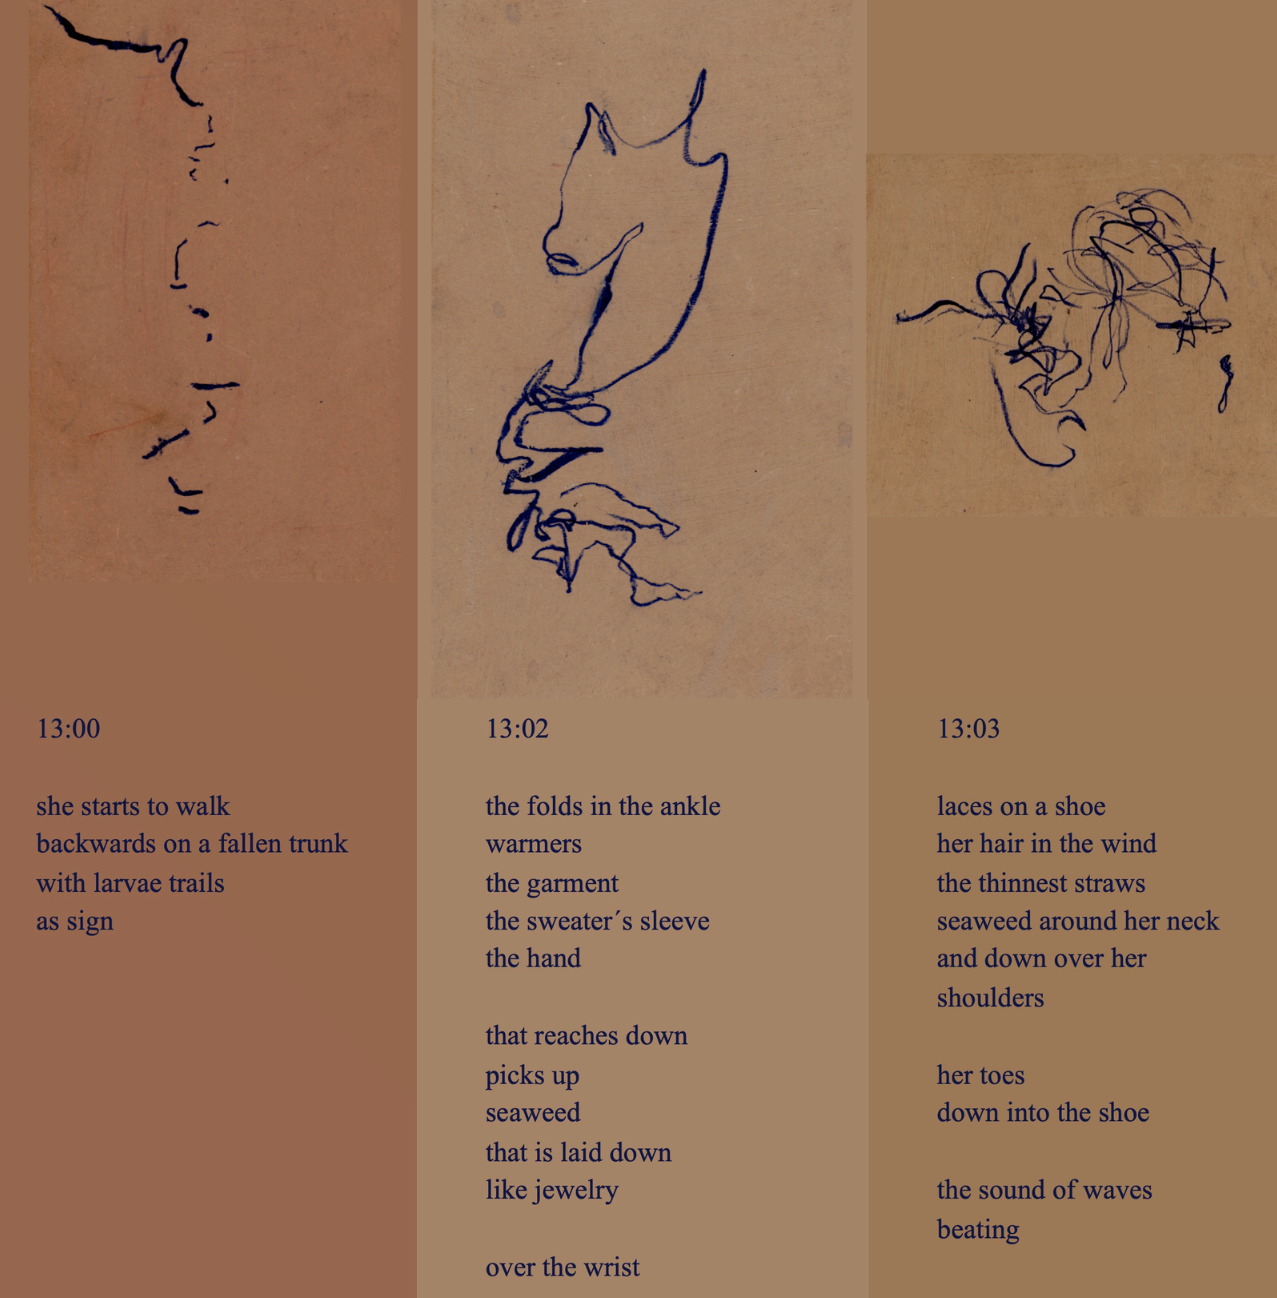 13:00
she starts to walk
backwards on a fallen trunk
with larvae trails
as sign
13:02
the folds in the ankle
warmers
the garment
the sweater´s sleeve
the hand
that reaches down
picks up
seaweed
that is laid down
like jewelry
over the wrist
13:03
laces on a shoe
her hair in the wind
the thinnest straws
seaweed around her neck
and down over her
shoulders
her toes
down into the shoe
the sound of waves
beating